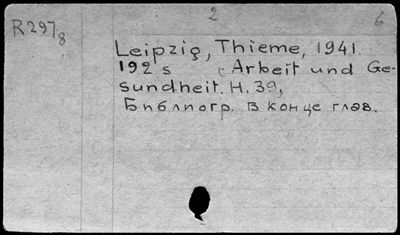 2
6
R 297
8
Leipzig, Thieme, 1941.
192 s (Arbeit und Ge-
sundheit. H. 39,
Библиогр. в конце глав.